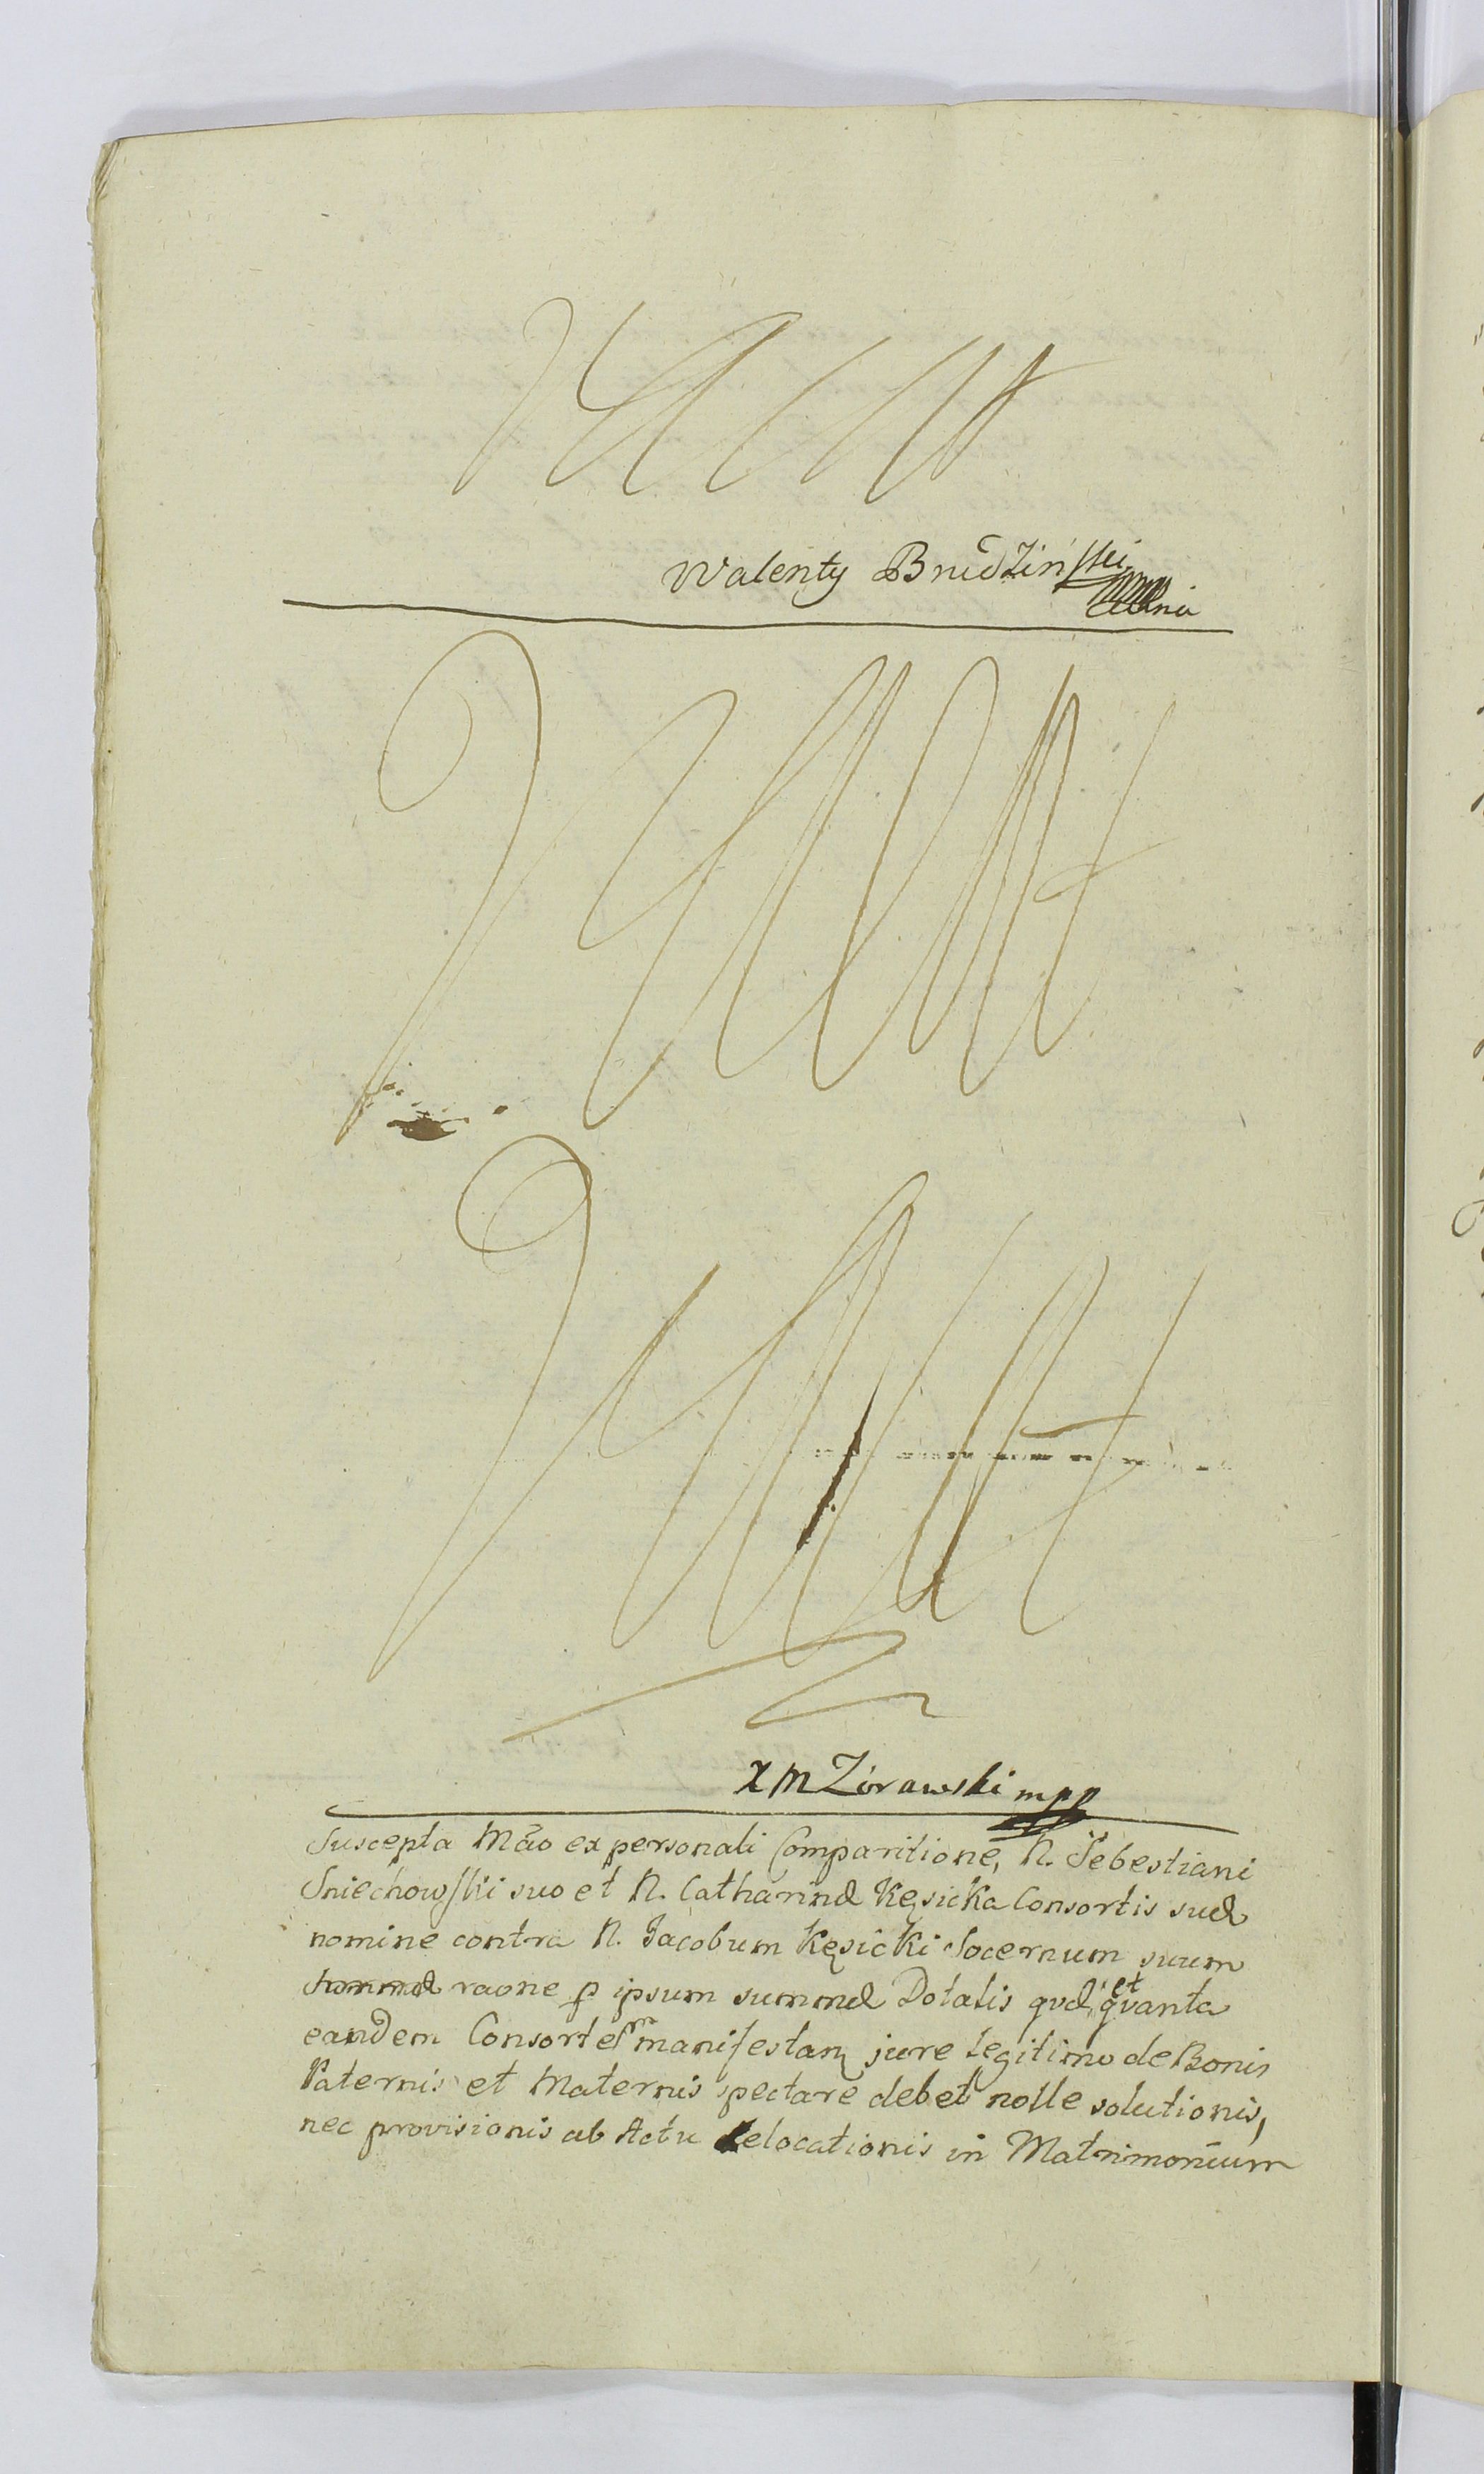 Vacat
Walenty Brudziński
Vacat
Vacat
X M Zórawski mpp
Suscepta Mão ex personali Comparitione, N. Sebestiani
Sniechowski suo et N. Catharinæ Kęsicka Consortis suæ
nomine contra N. Jacobum Kęsicki Socernum suum
raone p ipsum summæ Dotalis qvæ, et qvanta
eandem Consortem manifestam jure legitimo de Bonis
Paternis et Maternis spectare debet nolle solutionis,
nec provisionis ab Actu elocationis in Matrimonium